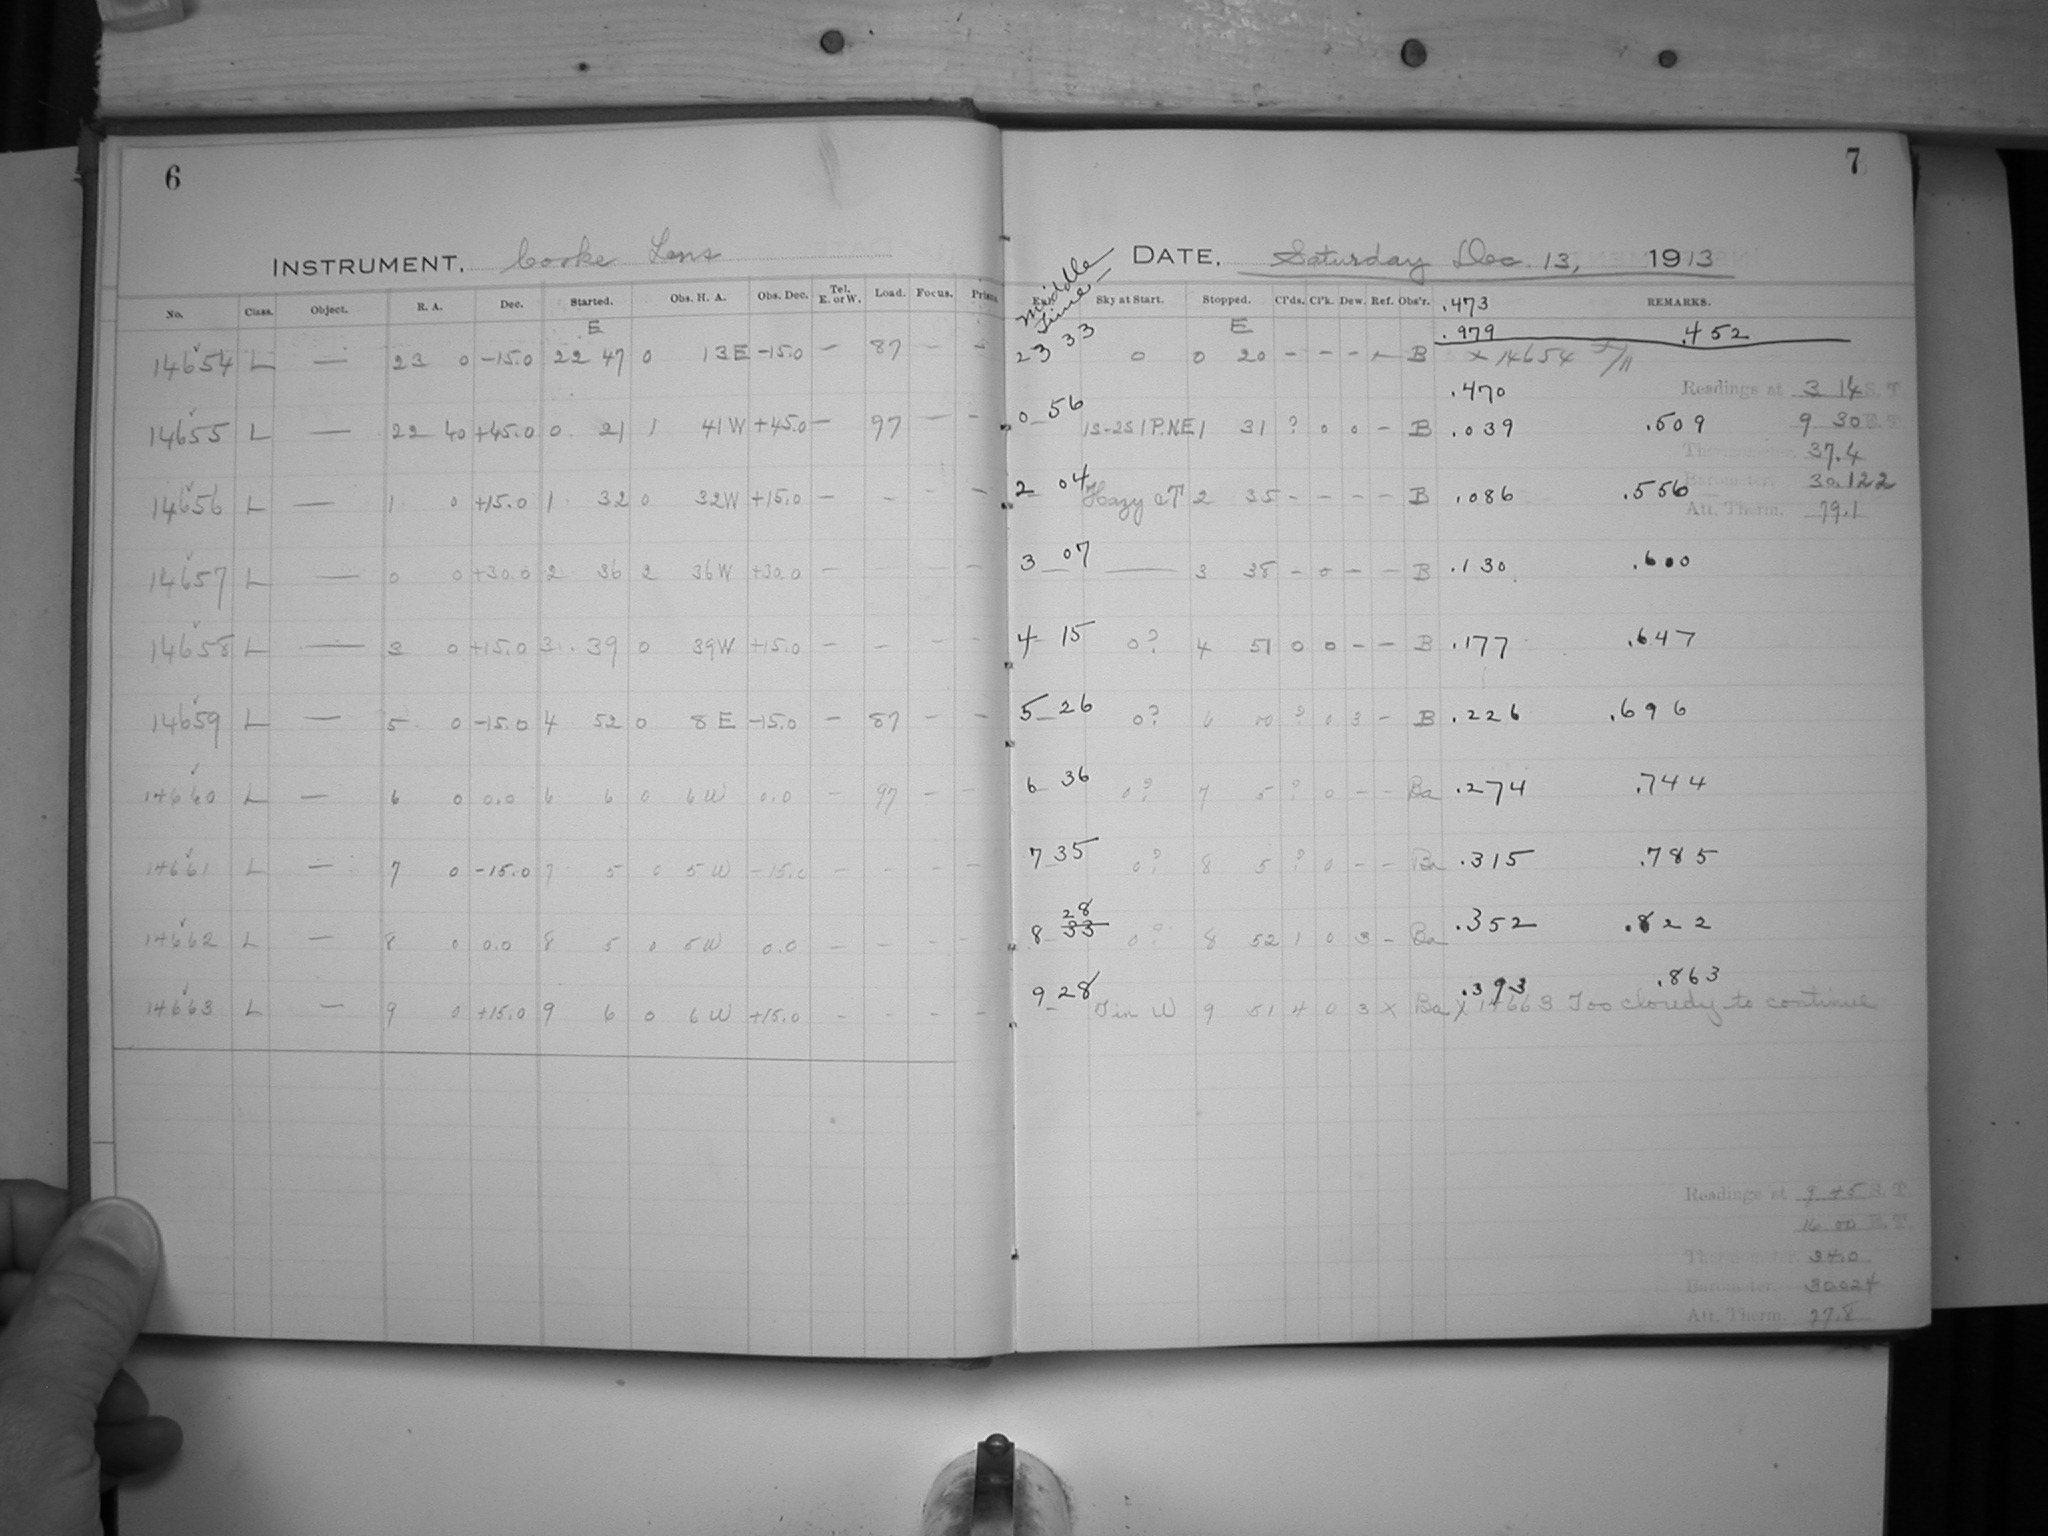 6
INSTRUMENT. Cooke Lens
No. Class. Object. R. A. Dec. Started. Obs. H. A. Obs. Dec. Tel. E. or W. Load. Focus. Prism
E
14654 L — 23 0 -15.0 22 47 0 13E -15.0 — 87 — —
14655 L — 22 40 +45.0 0 21 1 41W +45.0 — 97 — —
14656 L — 1 0 +15.0 1 32 0 32W +15.0 — - - —
14657 L — 0 0 +30.0 2 36 2 36W +30.0 — - - —
14658 L — 3 0 +15.0 3 39 0 39W +15.0 — — - -
14659 L — 5 0 -15.0 4 52 0 8 E -15.0 — 87 — —
14660 L — 6 0 0.0 6 6 0 6W 0.0 — 97 — —
14661 L — 7 0 -15.0 7 5 0 5W -15.0 — - - —
14662 L — 8 0 0.0 8 5 0 5W 0.0 — — — —
14663 L — 9 0 +15.0 9 6 0 6W +15.0 - - - -
7
DATE. Saturday Dec. 13, 1913
Middle Time
Sky at Start. Stopped. Cl'ds. Cl'k. Dew. Ref. Obs'r. REMARKS.
.473
E
.979 .452
23 33 0 0 20 - - - - B x 14654
.470
Readings at 3 14 S. T.
0 56 1S-2S1P.NE 1 31 ? 0 0 - B .039 .509
9 30 E. T.
37.4
2 04 Hazy 2 35 - - - - B .086 .556
Barometer. 30.122
Att. Therm. 79.1
3 07 — 3 38 - 0 - - B .130 .600
4 15 0? 4 51 0 0 - - B .177 .647
5 26 0? 6 00 ? 0 3 - B .226 .696
6 36 0? 7 5 ? 0 - - Ba .274 .744
7 35 0? 8 5 ? 0 - - Ba .315 .785
28
8 33 0? 8 52 1 0 3 - Ba .352 .822
.393 .863
9 28 in W 9 51 4 0 3 x Ba x 14663 Too cloudy to continue
Readings at 9 45 S. T.
16 00 E. T.
Thermometer. 34.0
Barometer. 30.024
Att. Therm. 77.8